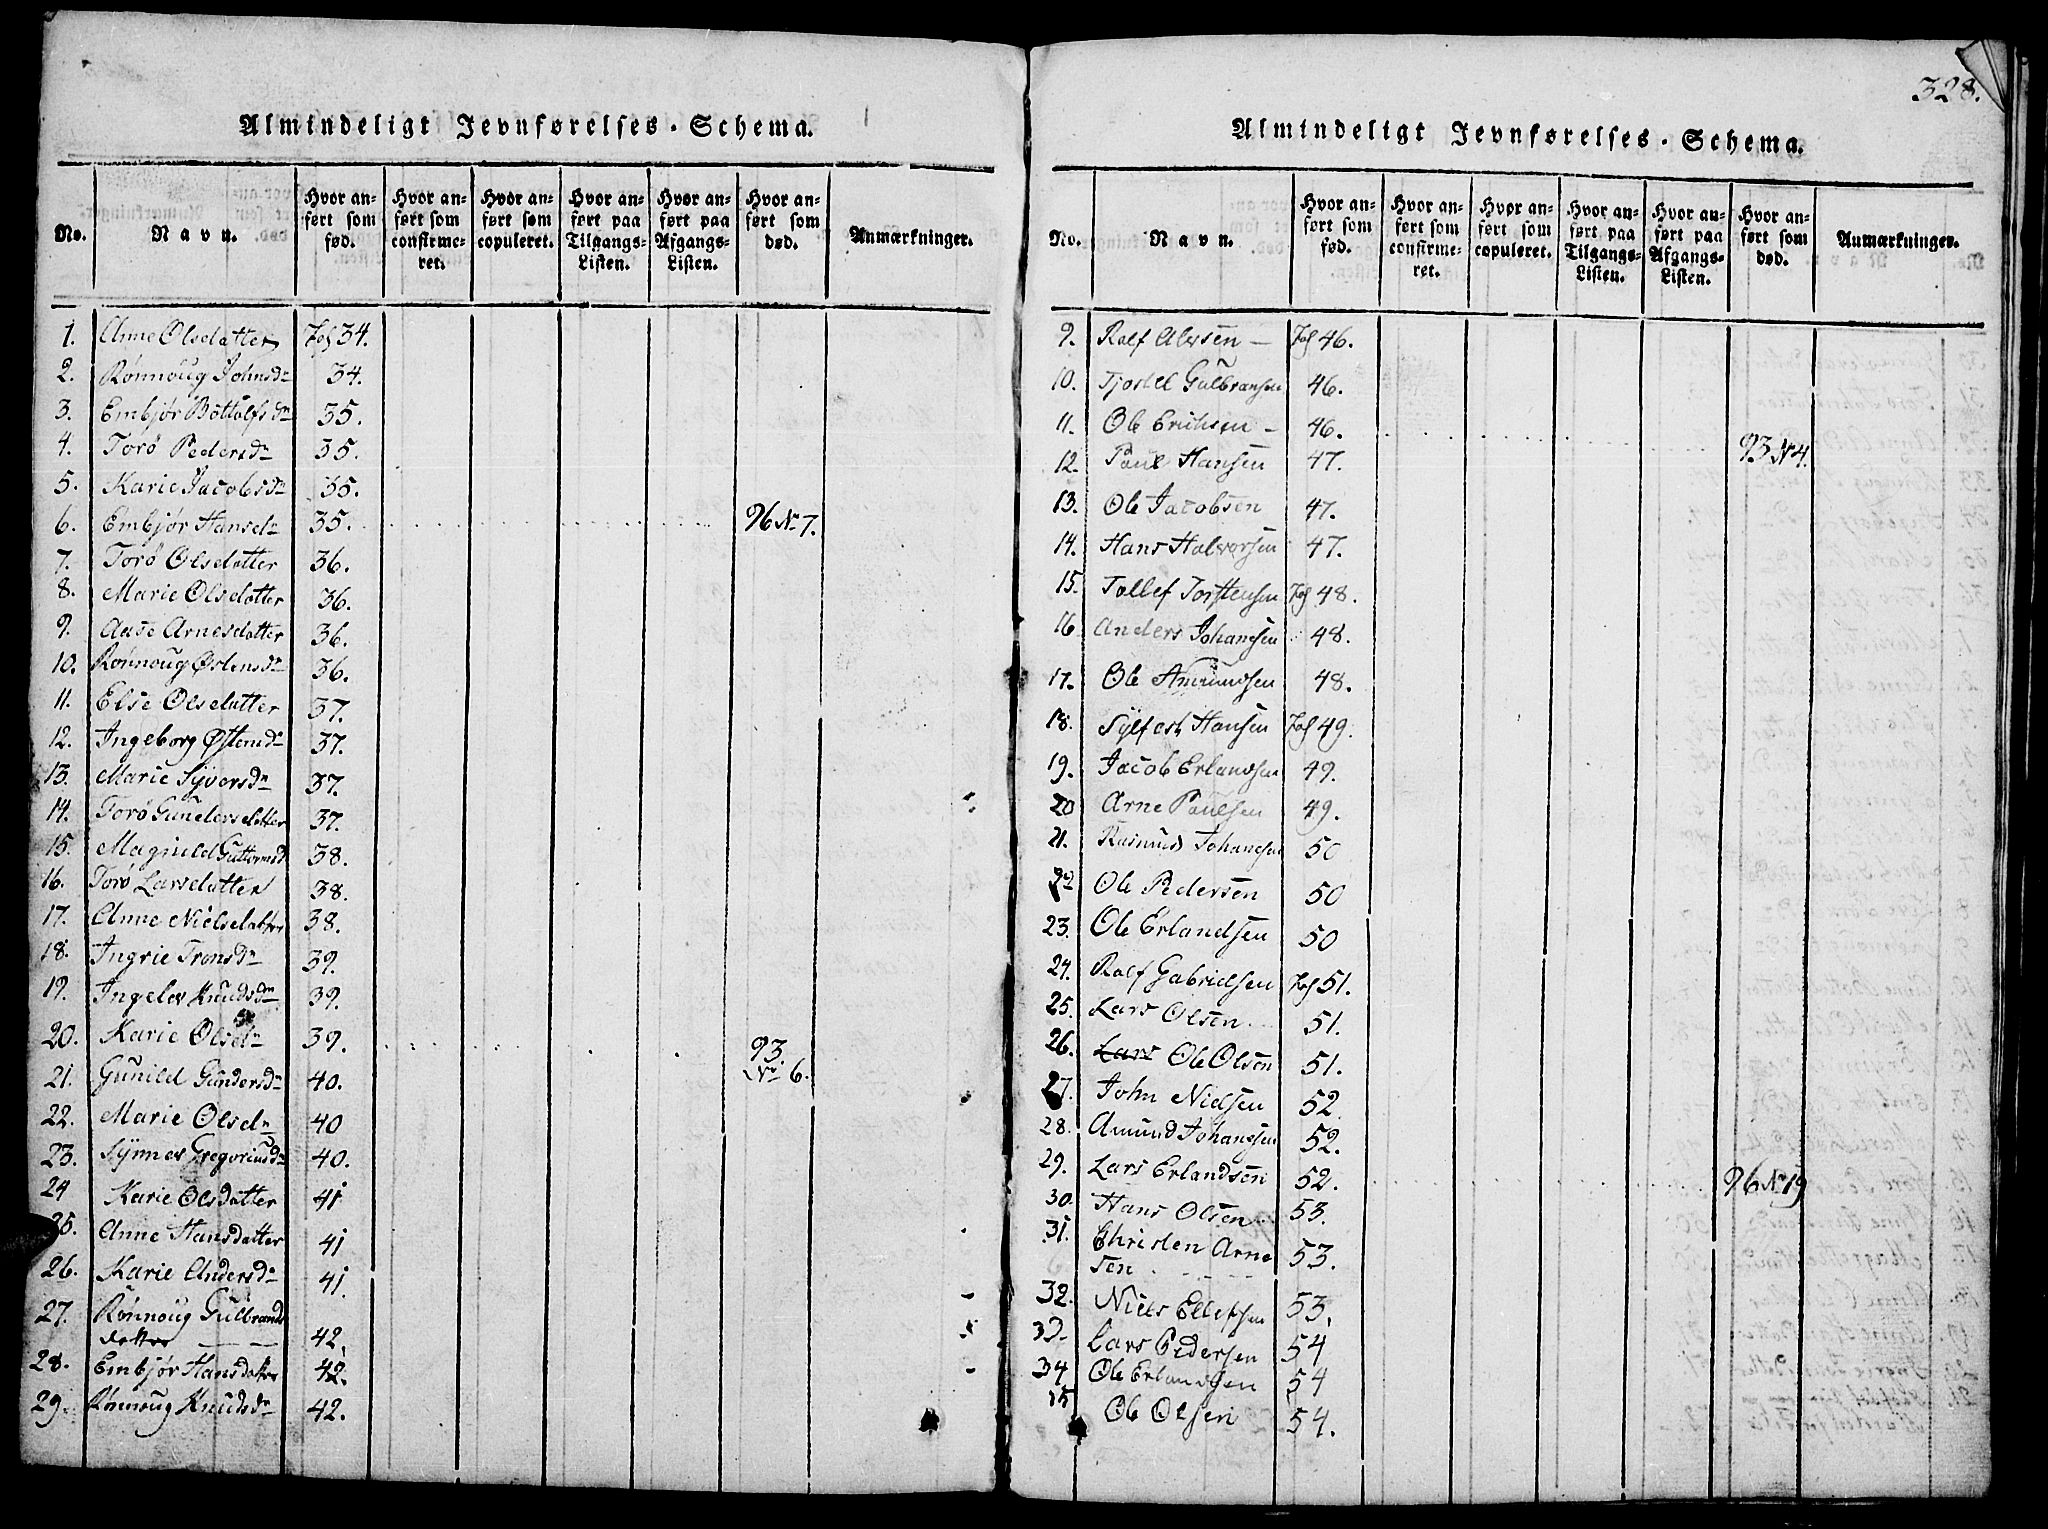 328.
Almindeligt Jevnførelses-Schema.
No.
Navn.
Hvor anført som fød.
Hvor anført som confirmeret.
Hvor anført som copuleret.
Hvor anført paa Tilgangs-Listen.
Hvor anført paa Afgangs-Listen.
Hvor anført som død.
Anmærkninger.
1. Anne Olsdatter Fol 34.
2. Rønnoug Johnsdr 34.
3. Embjør Bottolfsdr 35.
4. Torø Pedersdr 35.
5. Karie Jacobsdr 35.
6. Embjør Hansdr 35. 96 No 7.
7. Torø Olsdatter 36.
8. Marie Olsdatter 36.
9. Aase Arnesdatter 36.
10. Rønnoug Østensdr 36.
11. Else Olsdatter 37.
12. Ingeborg Østensdr 37.
13. Marie Syversdr 37.
14. Torø Gundersdatter 37.
15. Magnild Guttormsd 38.
16. Torø Larsdatter 38.
17. Anne Nielsdatter 38.
18. Ingrie Tronsdr 39.
19. Ingeler Knudsdr 39.
20. Karie Olsdr 39. 93.
No 6.
21. Gunild Gundersdr 40.
22. Marie Olsdr 40
23. Synnev Gregoriusdr 40.
24 Karie Olsdatter 41
25. Anne Hansdatter 41
26. Karie Andersdr 41.
27. Rønnoug Gulbrands
datter 42.
28. Embjør Hansdatter 42.
29. Rønnoug Knudsdr 42.
Almindeligt Jevnførelses-Schema.
No.
Navn.
Hvor anført som fød.
Hvor anført som confirmeret.
Hvor anført som copuleret.
Hvor anført paa Tilgangs-Listen.
Hvor anført paa Afgangs-Listen.
Hvor anført som død.
Anmærkninger.
9. Rolf Alvsen Fol 46.
10. Tjostel Gulbransen 46.
11. Ole Erichsen 46. 93 No 4.
12. Paul Hansen 47.
13. Ole Jacobsen 47.
14. Hans Halvorsen 47.
15. Tollef Torstensen Fol 48.
16 Anders Johansen 48.
17. Ole Amundsen 48.
18. Sylfest Hansen Fol 49.
19. Jacob Erlandsen 49.
20 Arne Paulsen 49.
21. Rasmus Johansen 50
22 Ole Pedersen 50
23. Ole Erlandsen 50
24. Rolf Gabrielsen Fol 51.
25. Lars Olsen 51.
26. Lars Ole Olsen 51.
27. John Nielsen 52
28. Amund Johansen 52.
29. Lars Erlandsen 52. 96 No 19
30. Hans Olsen 53.
31. Christen Arne
sen 53.
32. Niels Ellefsen 53.
33. Lars Pedersen 54
34. Ole Erlandsen 54
35 Ole Olsen 54.